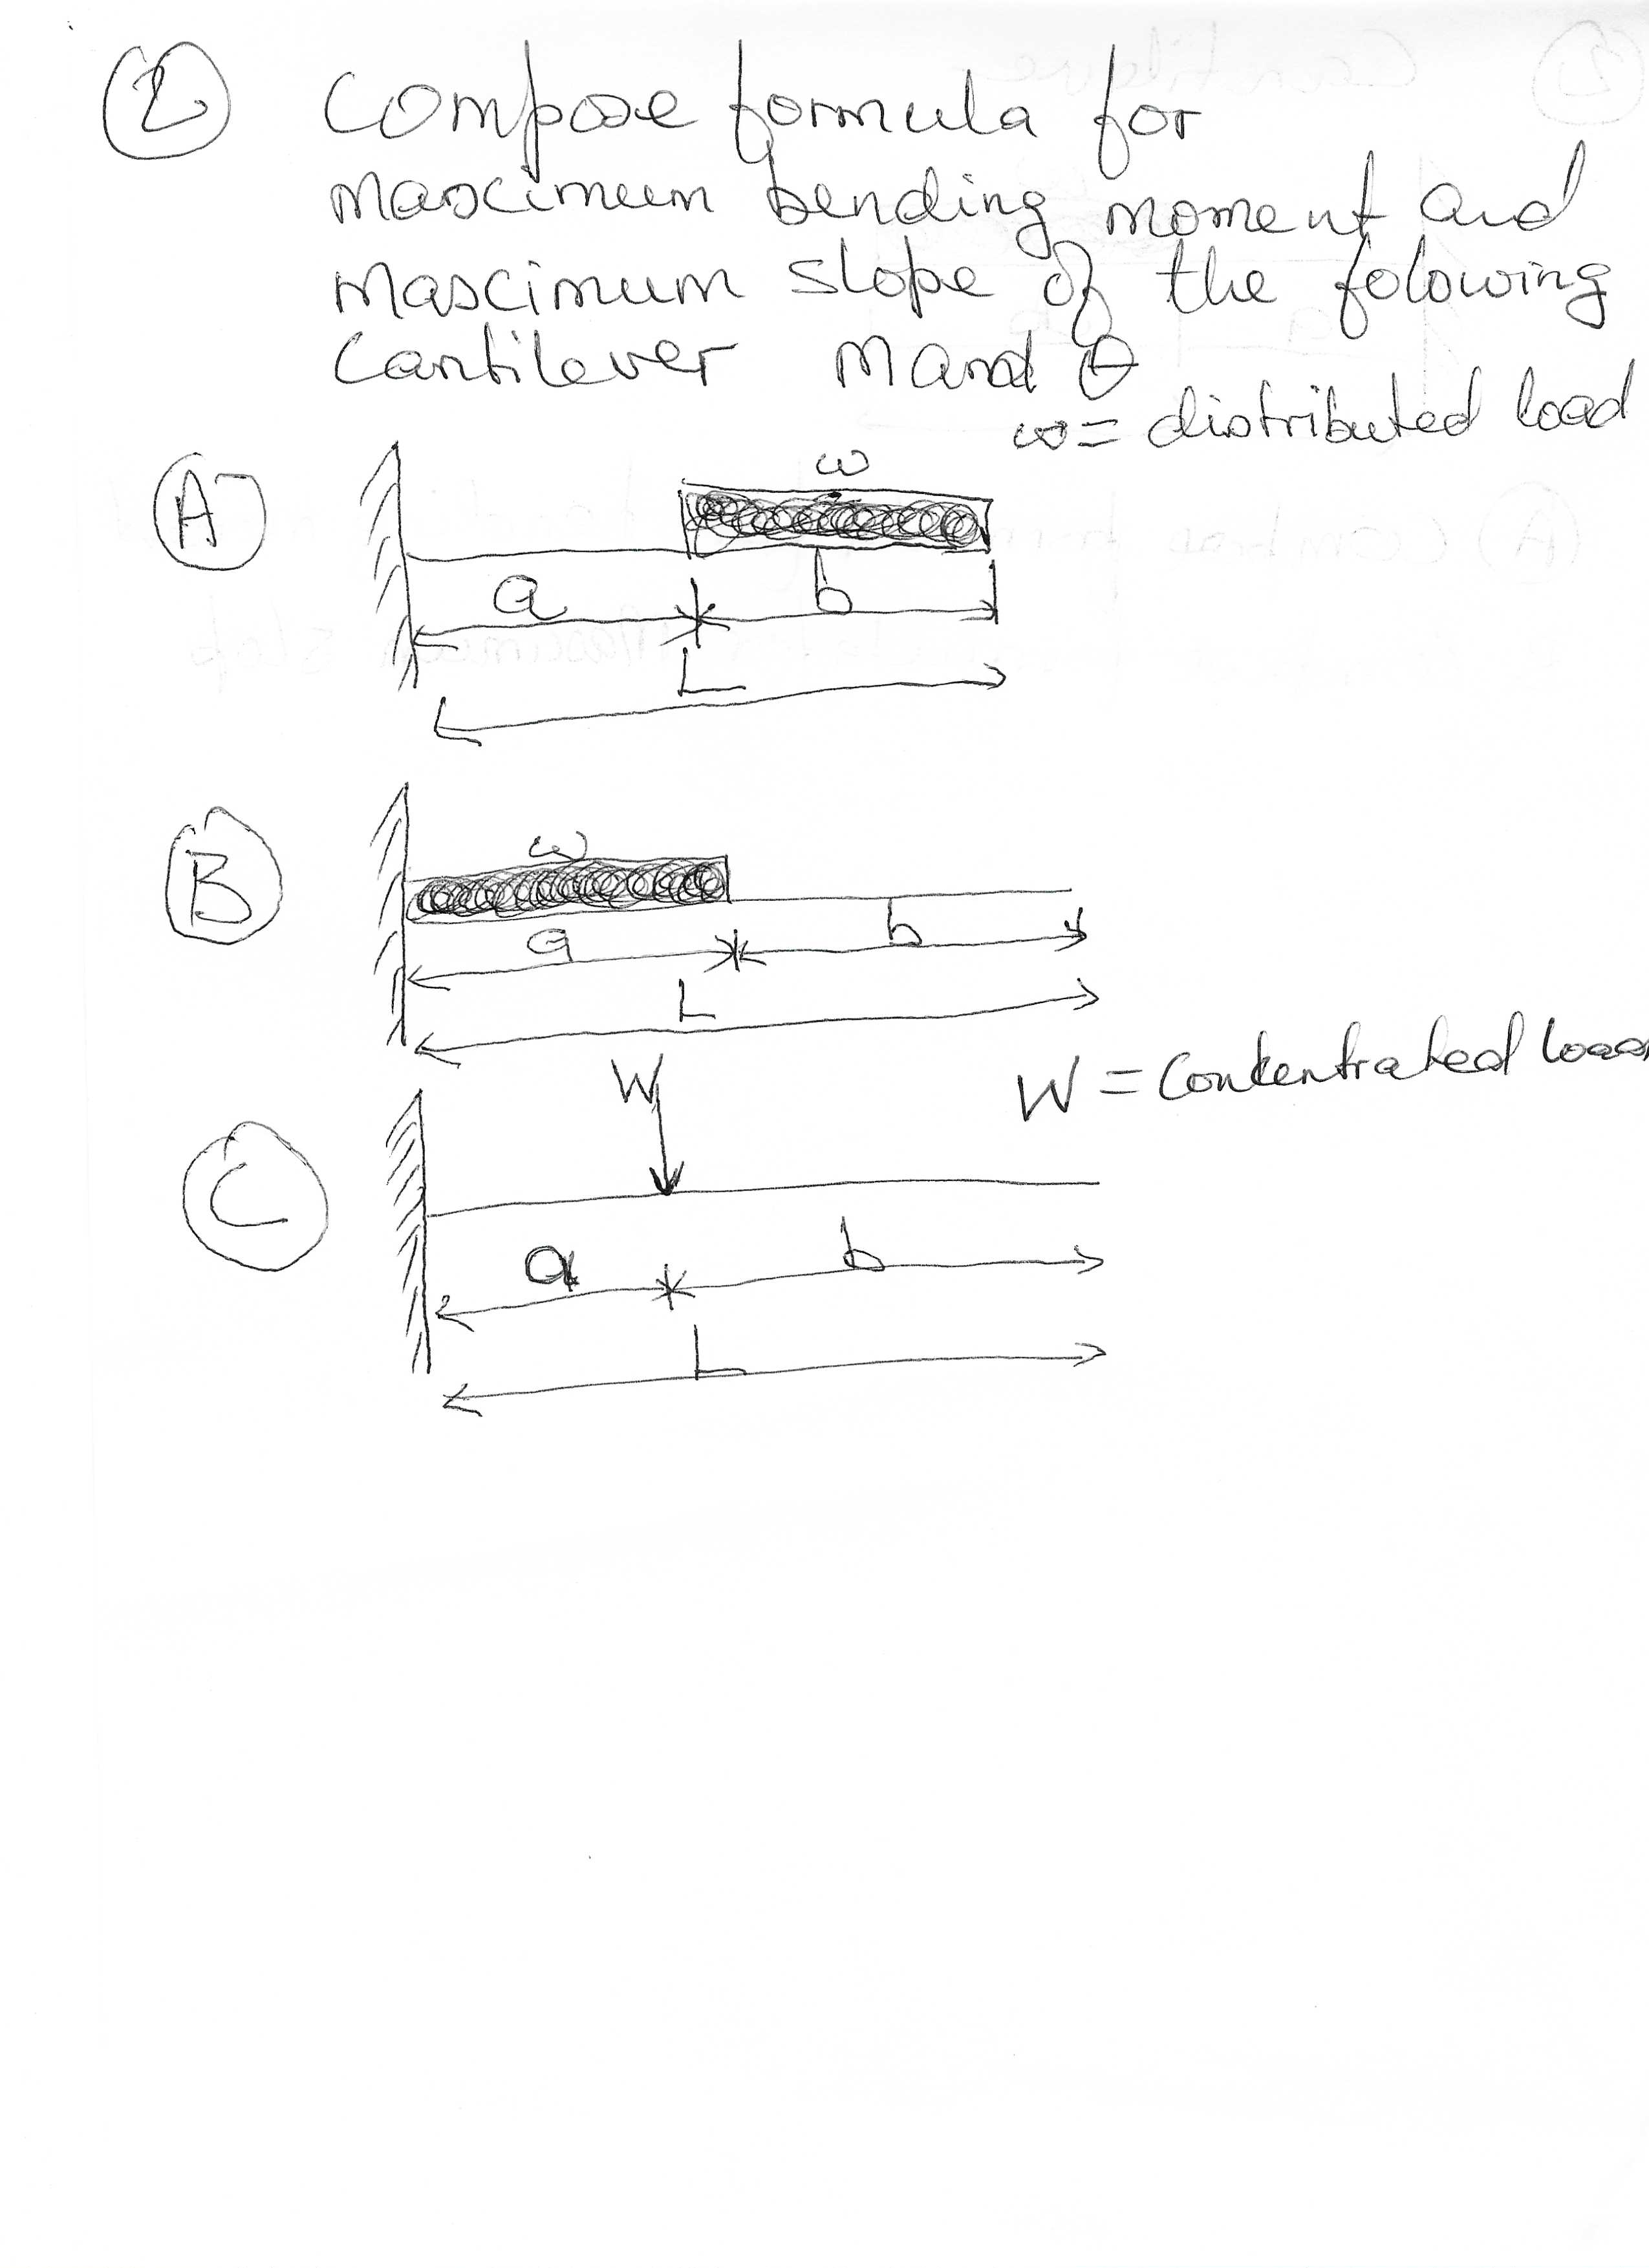 2 Compose formula for
Maximum bending moment and
Maximum slope of the folowing
Cantilever M and θ
w = distributed load
A
w
a b
L
B
w
a b
L
W = Conkentrated
W
C
a b
L